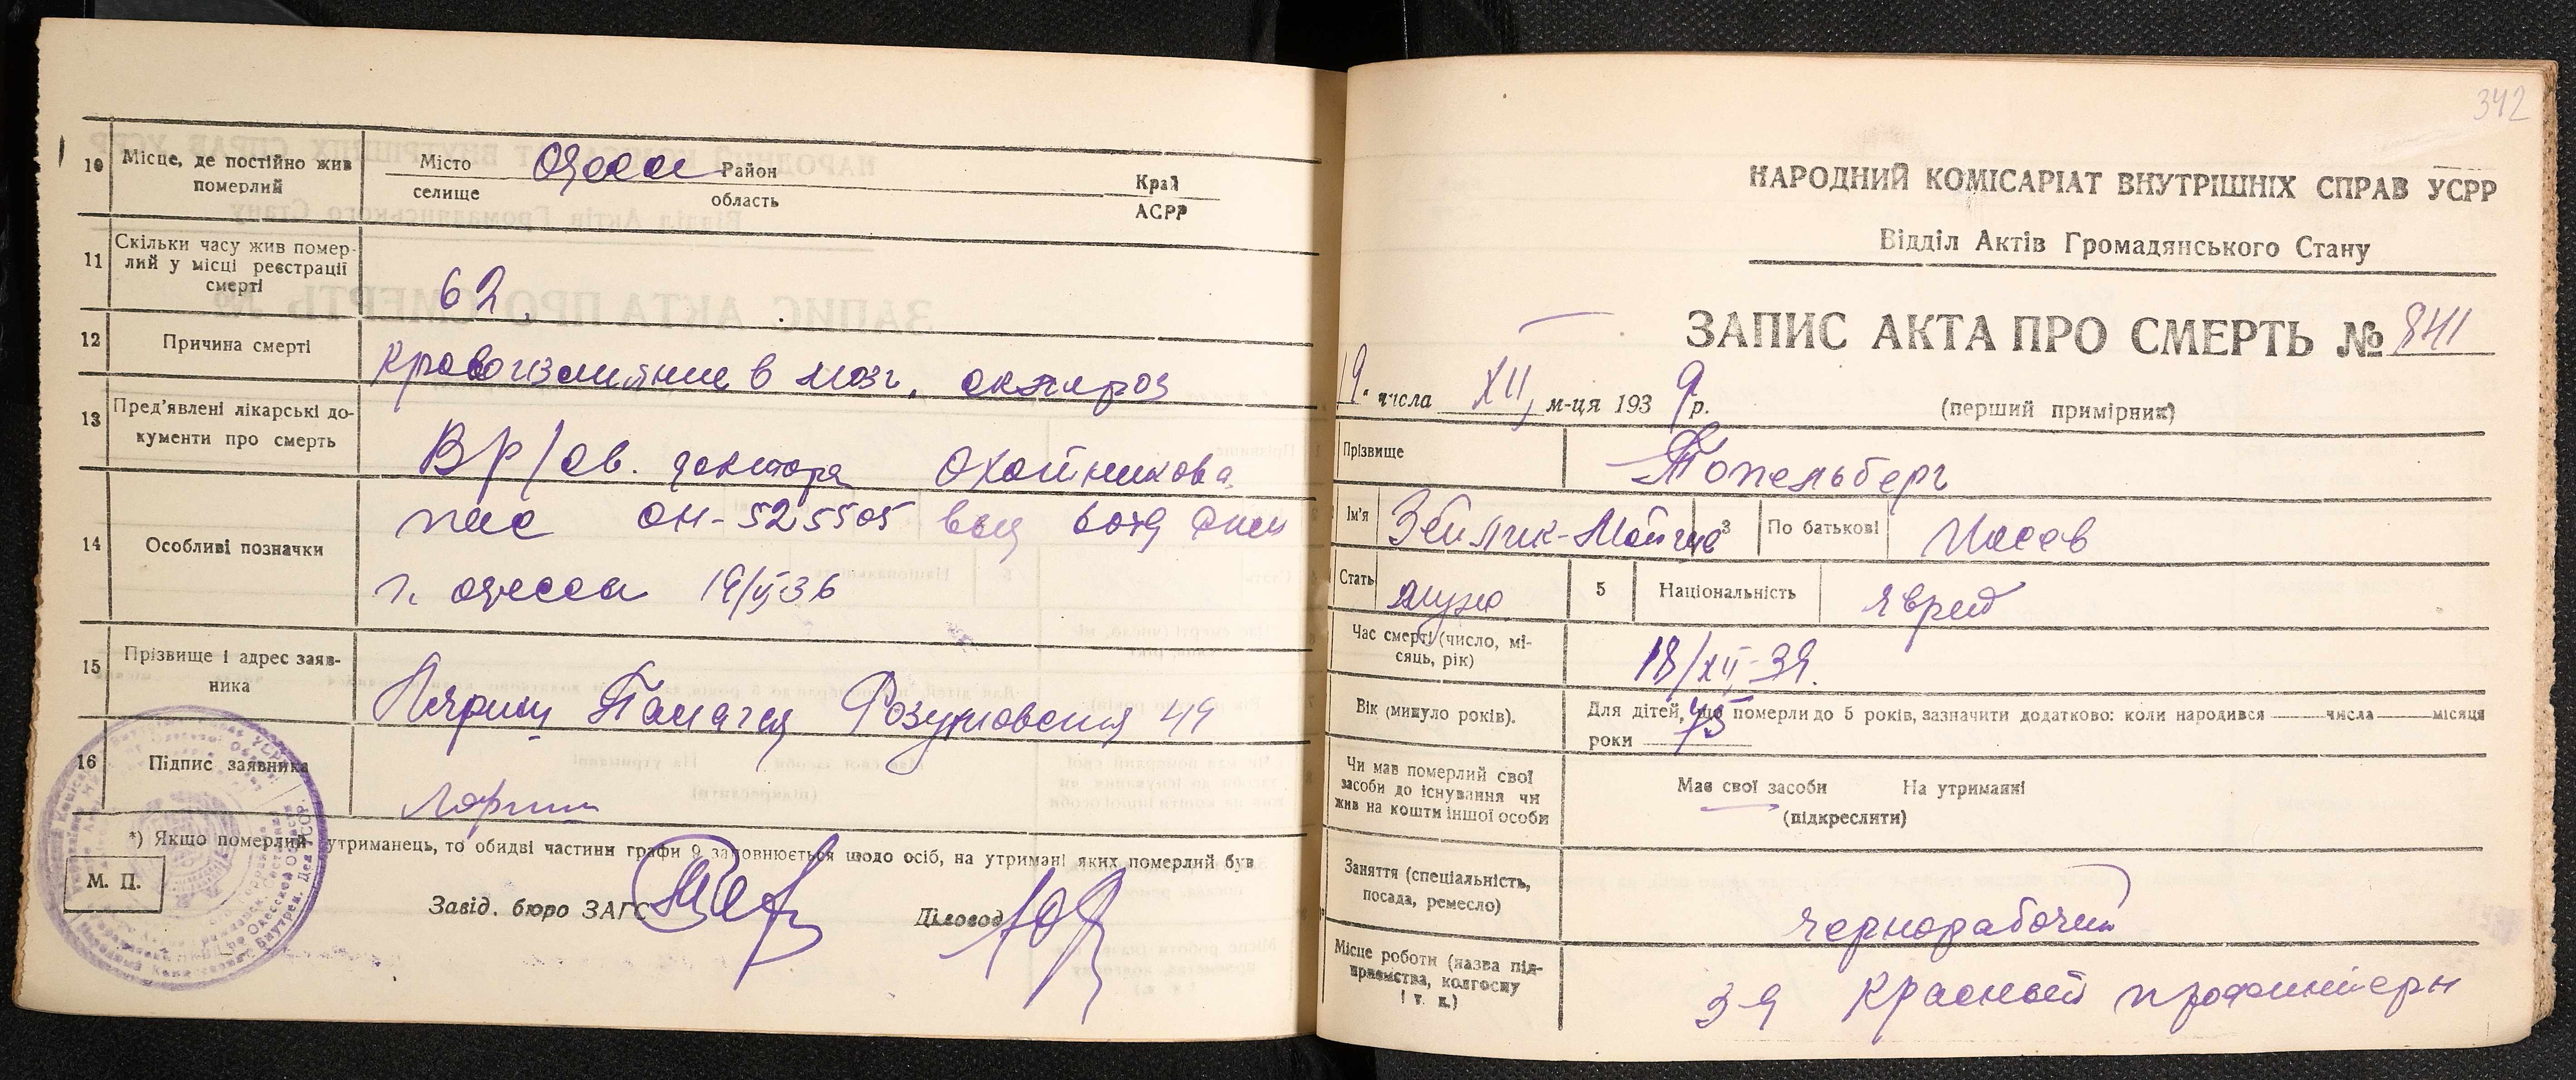 10 Місце, де постійно жив померлий
Місто Одесса Район Край
селище область АСРР
11 Скільки часу жив помер-
лий у місці реєстрації
смерті
62
12 Причина смерті
Кровоизлияние в мозг, склероз
13 Пред'явлені лікарські до-
кументи про смерть
Вр/св. доктора Охотникова
14 Особливі позначки
пас ОН-525505
г. Одесса 19/V 36
15 Прізвище і адрес заяв-
ника
Разумовская 44
16 Підпис заявника
*) Якщо померлий утриманець, то обидві частини графи 9 заповнюється щодо осіб, на утримані яких померлий був
М. П.
Завід. бюро ЗАГС Діловод
342
НАРОДНИЙ КОМІСАРІАТ ВНУТРІШНІХ СПРАВ УСРР
Відділ Актів Громадянського Стану
ЗАПИС АКТА ПРО СМЕРТЬ № 841
19. числа XII, м-ця 1939 р. (перший примірник)
Прізвище Топельберг
Ім'я 3 По батькові Иосев
Стать муж 5 Національність яврей
Час смерті (число, мі-
сяць, рік)
18/XII-39.
Вік (минуло років).
75
Для дітей, що померли до 5 років, зазначити додатково: коли народився числа місяця
роки
Чи мав померлий свої
засоби до існування чи
жив на кошти іншої особи
Має свої засоби На утриманні
(підкреслити)
Заняття (спеціальність,
посада, ремесло)
чернорабочий
Місце роботи (назва під-
приємства, колгоспу
і т. п.)
з-д Красный профинтерн